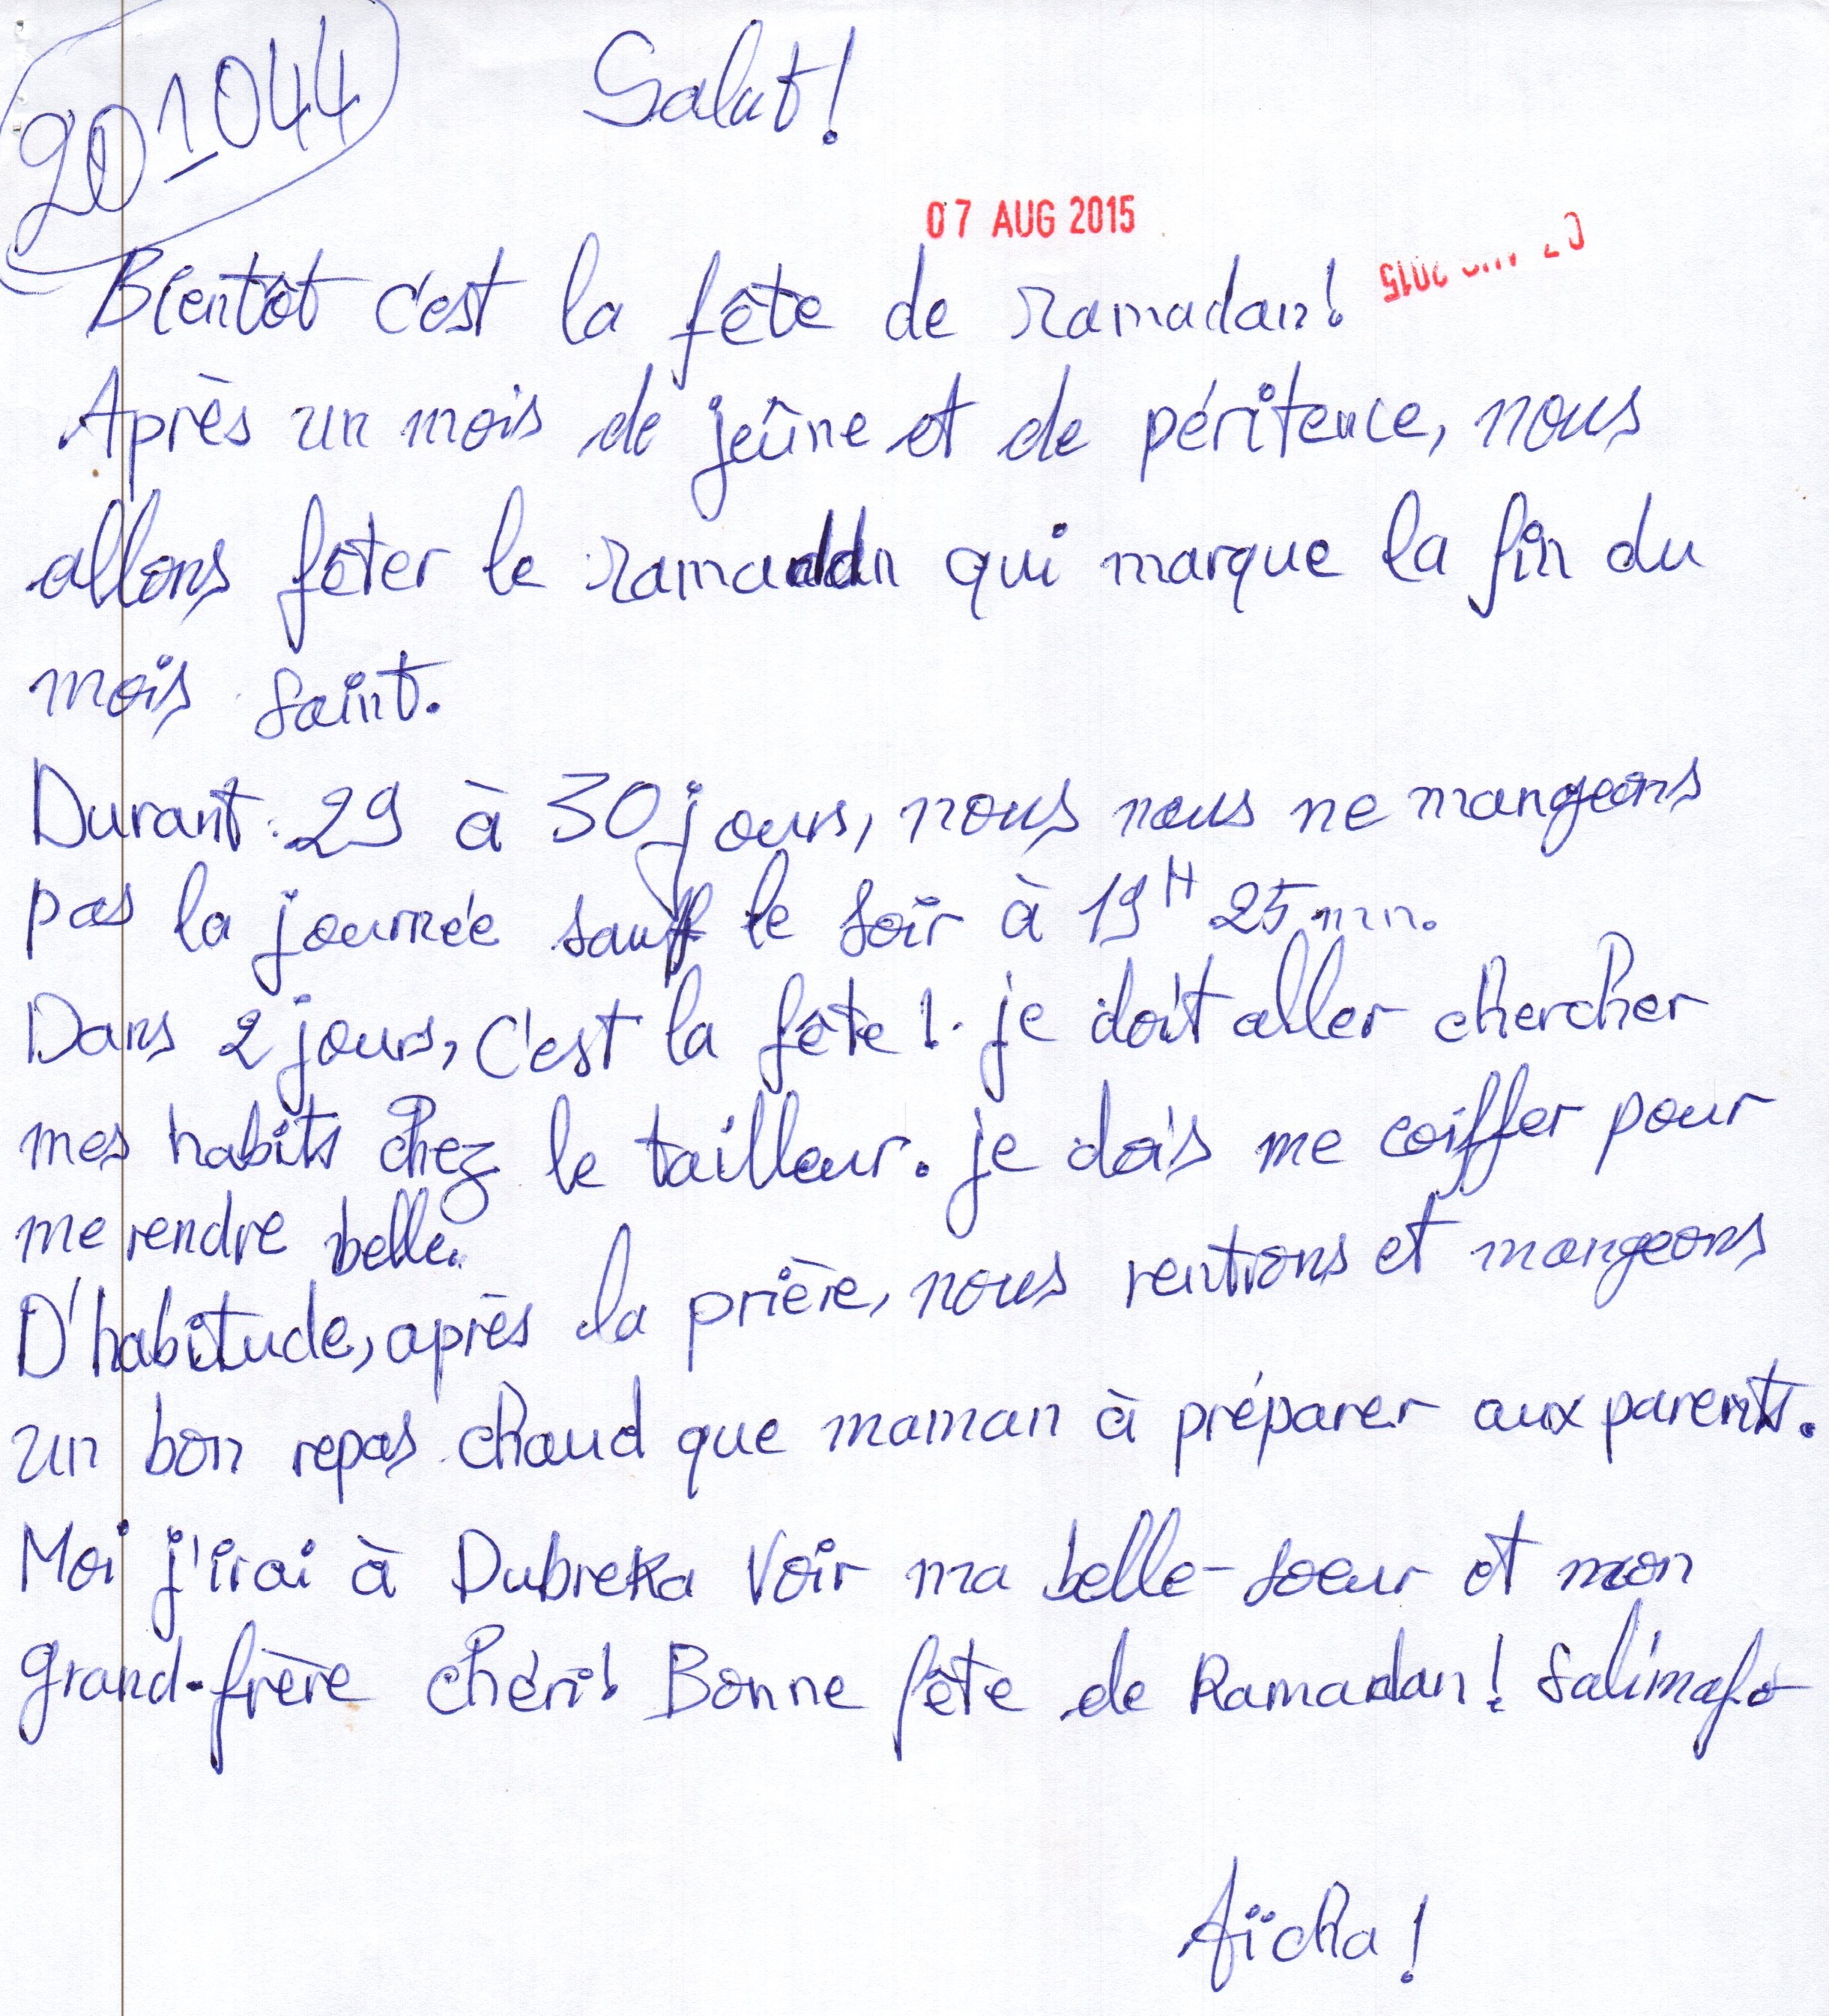 201044
Salut!
07 AUG 2015
Bientôt c'est la fête de ramadan!
Après un mois de jeûne et de péritence, nous
allons fêter le ramadan qui marque la fin du
mois saint.
Durant 29 à 30 jours, nous nous ne mangeons
pas la journée sauf le soir à 19H 25 mn.
Dans 2 jours, c'est la fête ! je doit aller chercher
mes habits chez le tailleur. je dois me coiffer pour
me rendre belle.
D'habitude, après la prière, nous rentrons et mangeons
un bon repas chaud que maman à préparer aux parents.
Moi j'irai à Dubreka voir ma belle-soeur et mon
grand-frère chéri! Bonne fête de Ramadan! Salimafo
Aïcha!